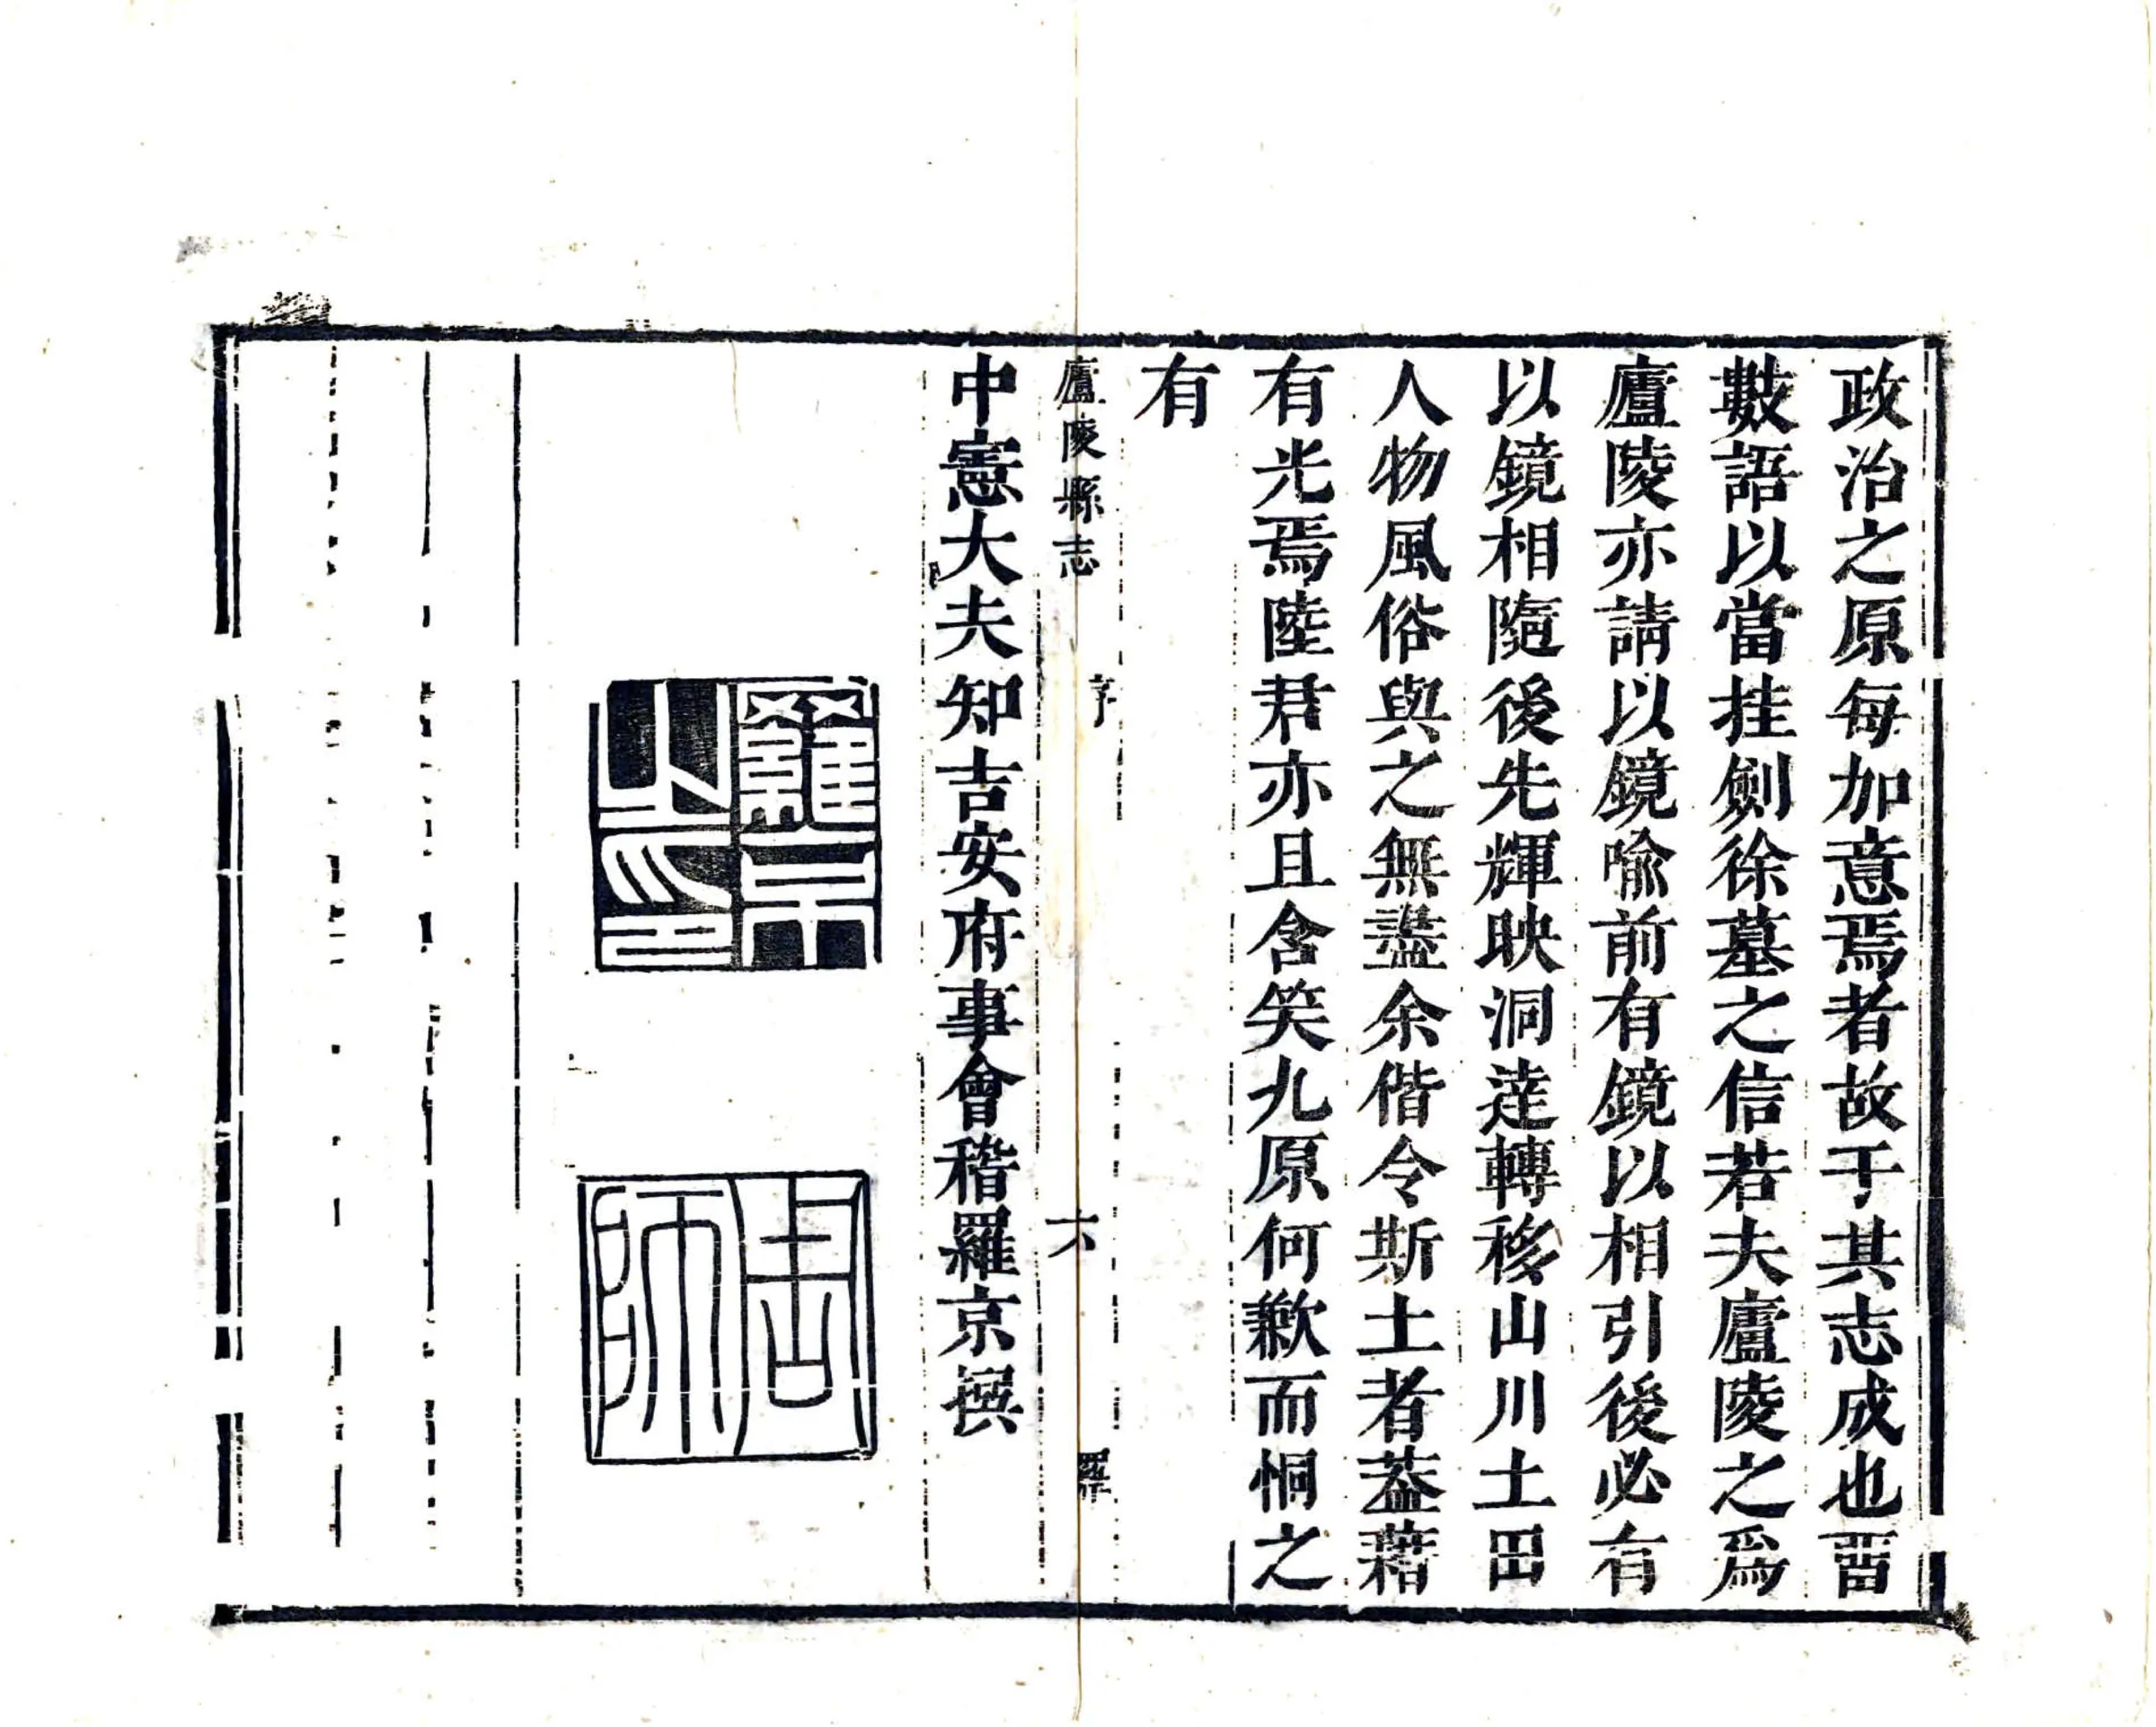 政治之原每加意焉者故于其志成也畱
數語以當挂劍徐墓之信若夫廬陵之爲
廬陵亦請以鏡喻前有鏡以相引後必有
以鏡相隨後先輝映洞達轉移山川土田
人物風俗與之無盡余偕令斯土者葢藉
有光焉陸君亦且含笑九原何歉而恫之
有
廬陵縣志
序
六
羅
中憲大夫知吉安府事會稽羅京撰
羅京之印
周師